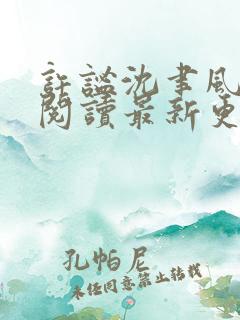 許謐沈聿風
閱讀最新更
孔帕尼
未任同意禁止转载